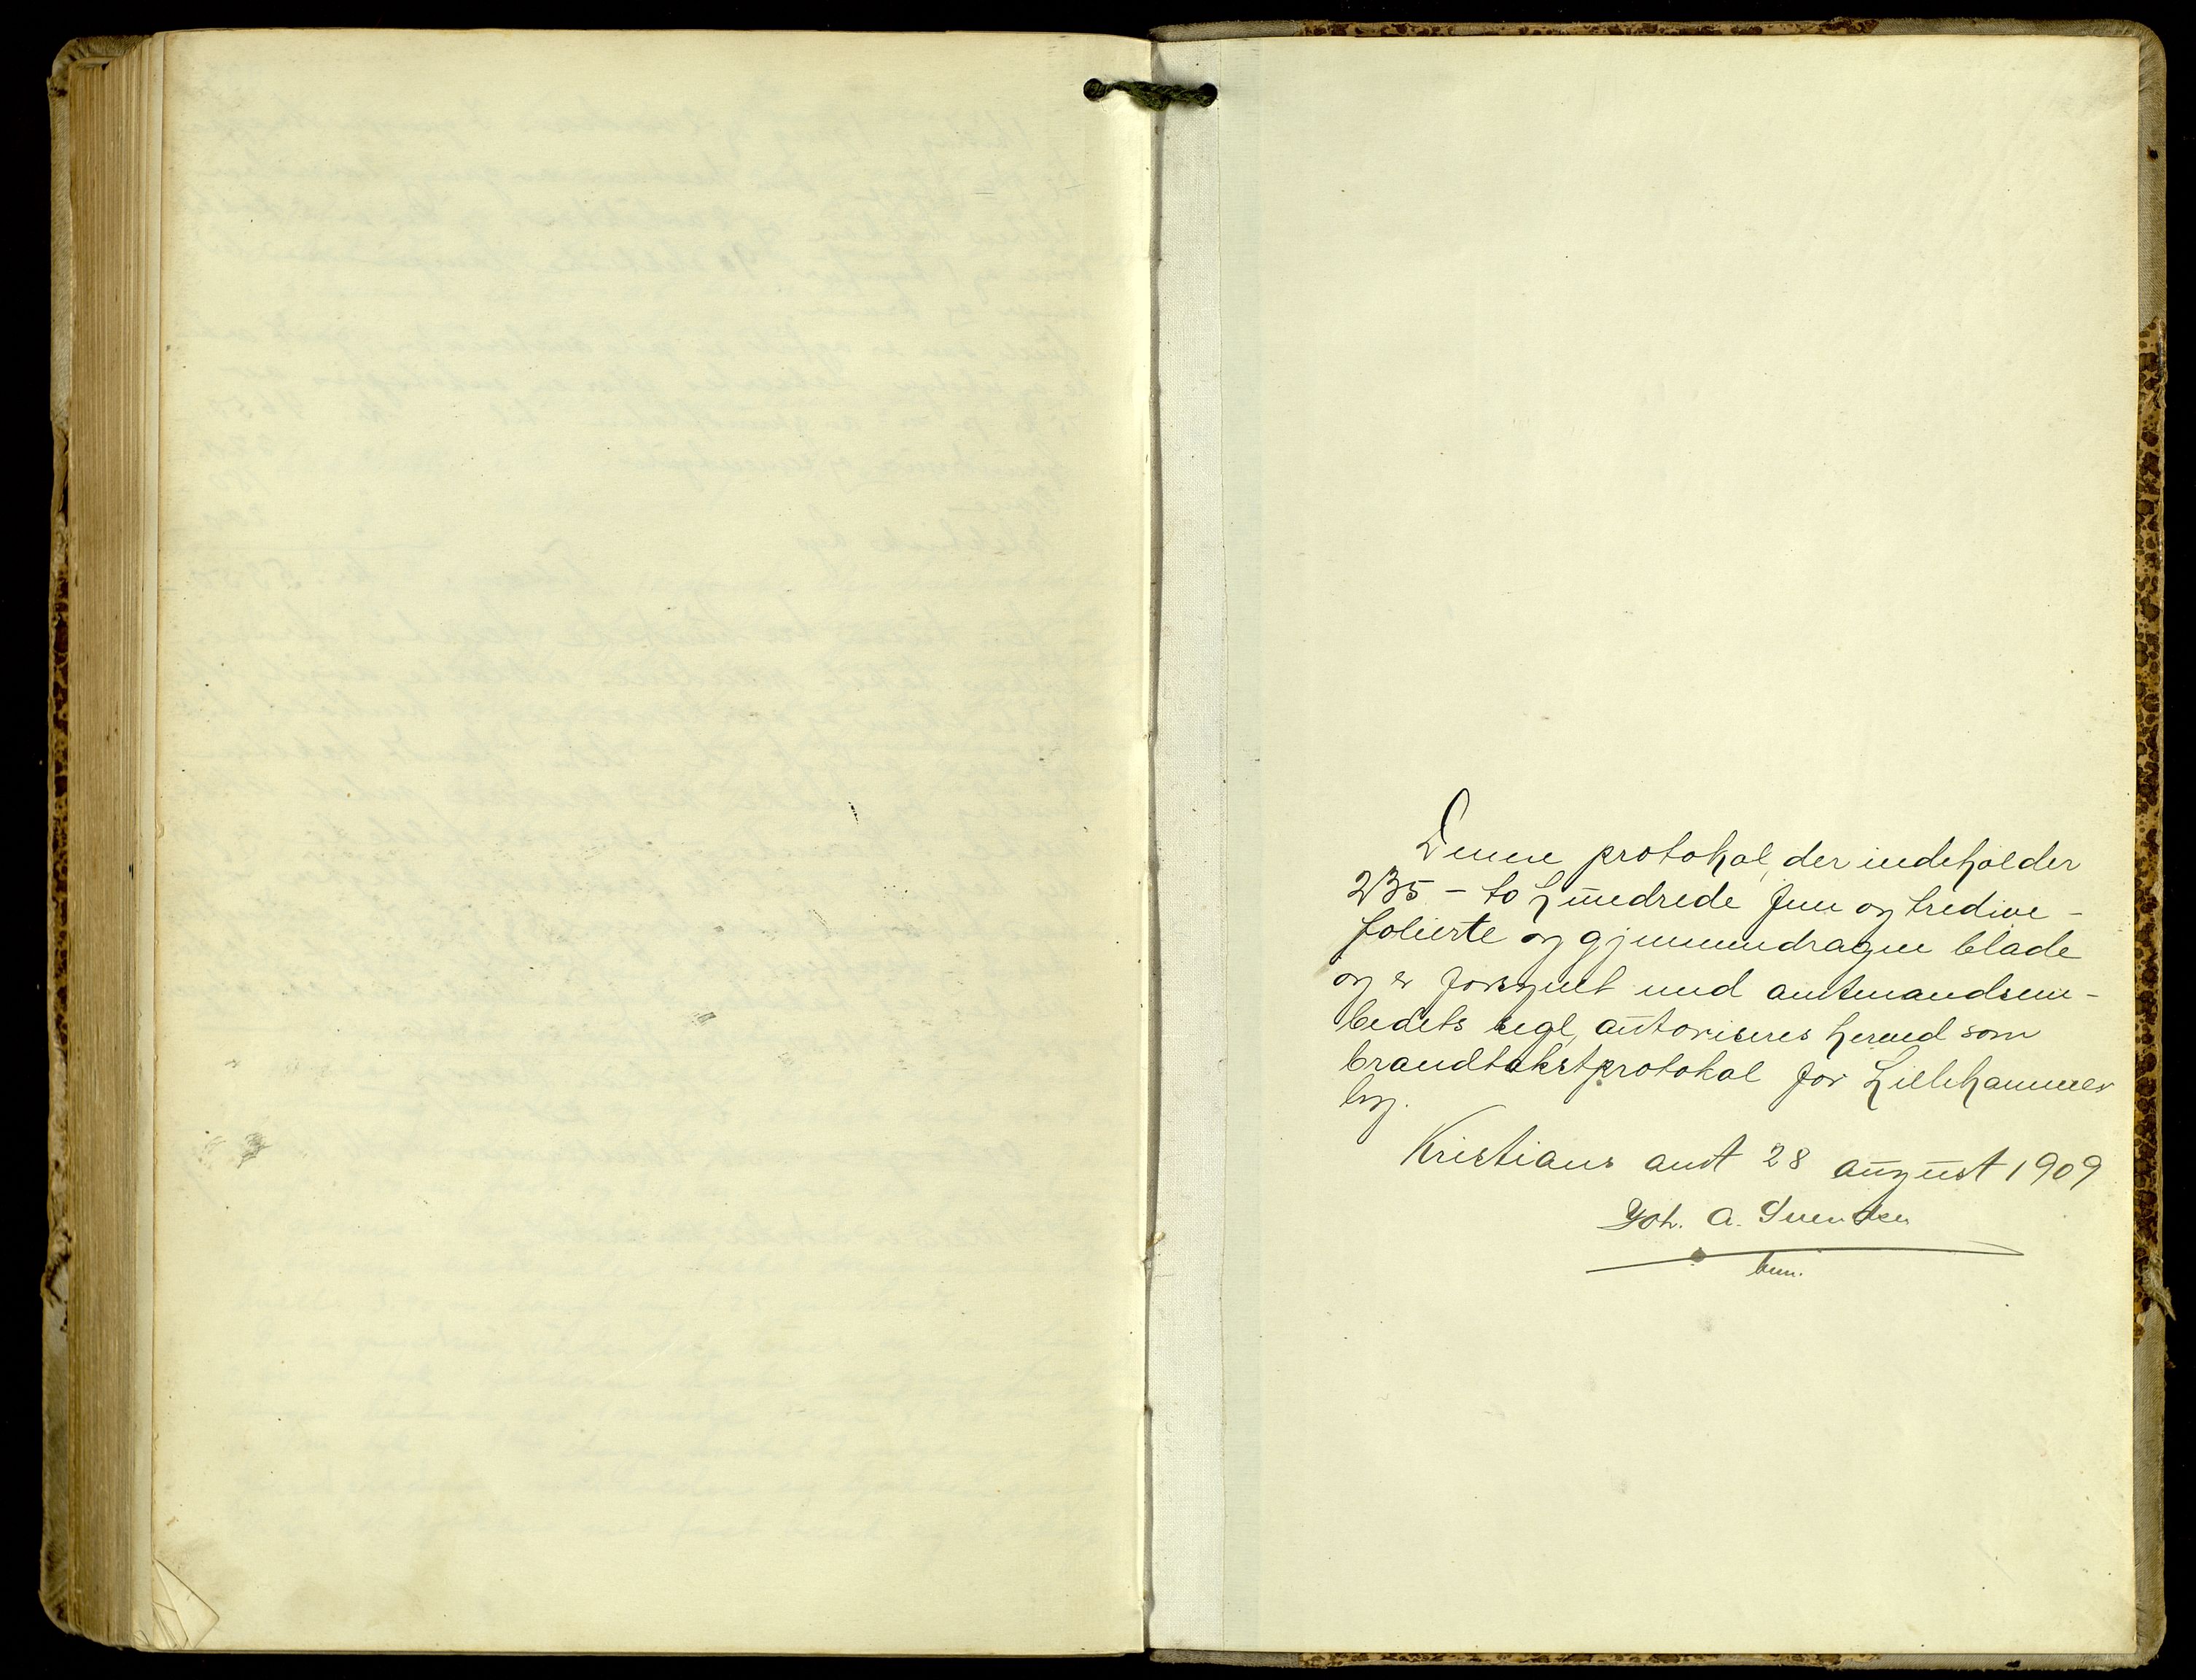 Denne protokol, der indeholder
235 – to hundrede fem og tredive –
folierte og gjennemdragne blade
og er forsynet med amtmandsem-
bedets segl, autoriseres herved som
brandtakstprotokol for Lillehammer
by.
Kristians amt 28 august 1909
Joh. A. Svendsen